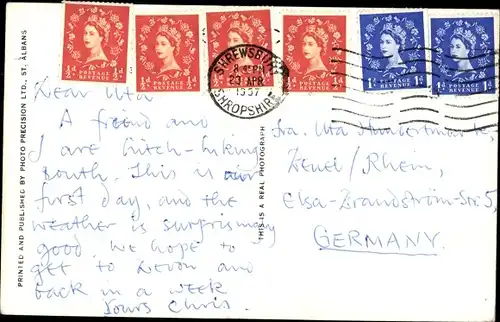 ½d POSTAGE REVENUE ½d
½d POSTAGE REVENUE ½d
½d POSTAGE REVENUE ½d
½d POSTAGE REVENUE ½d
1d POSTAGE REVENUE 1d
1d POSTAGE REVENUE 1d
SHREWSBURY
23 APR
1957
SHROPSHIRE
PRINTED AND PUBLISHED BY PHOTO PRECISION LTD., ST. ALBANS
THIS IS A REAL PHOTOGRAPH
Dear Uta
A friend and
I are hitch-hiking
south. This is our
first day, and the
weather is surprisingly
good. We hope to
get to Devon and
back in a week
Yours Chris.
Uta
/Rhein,
Elsa-Brandström-Str. 5,
GERMANY.